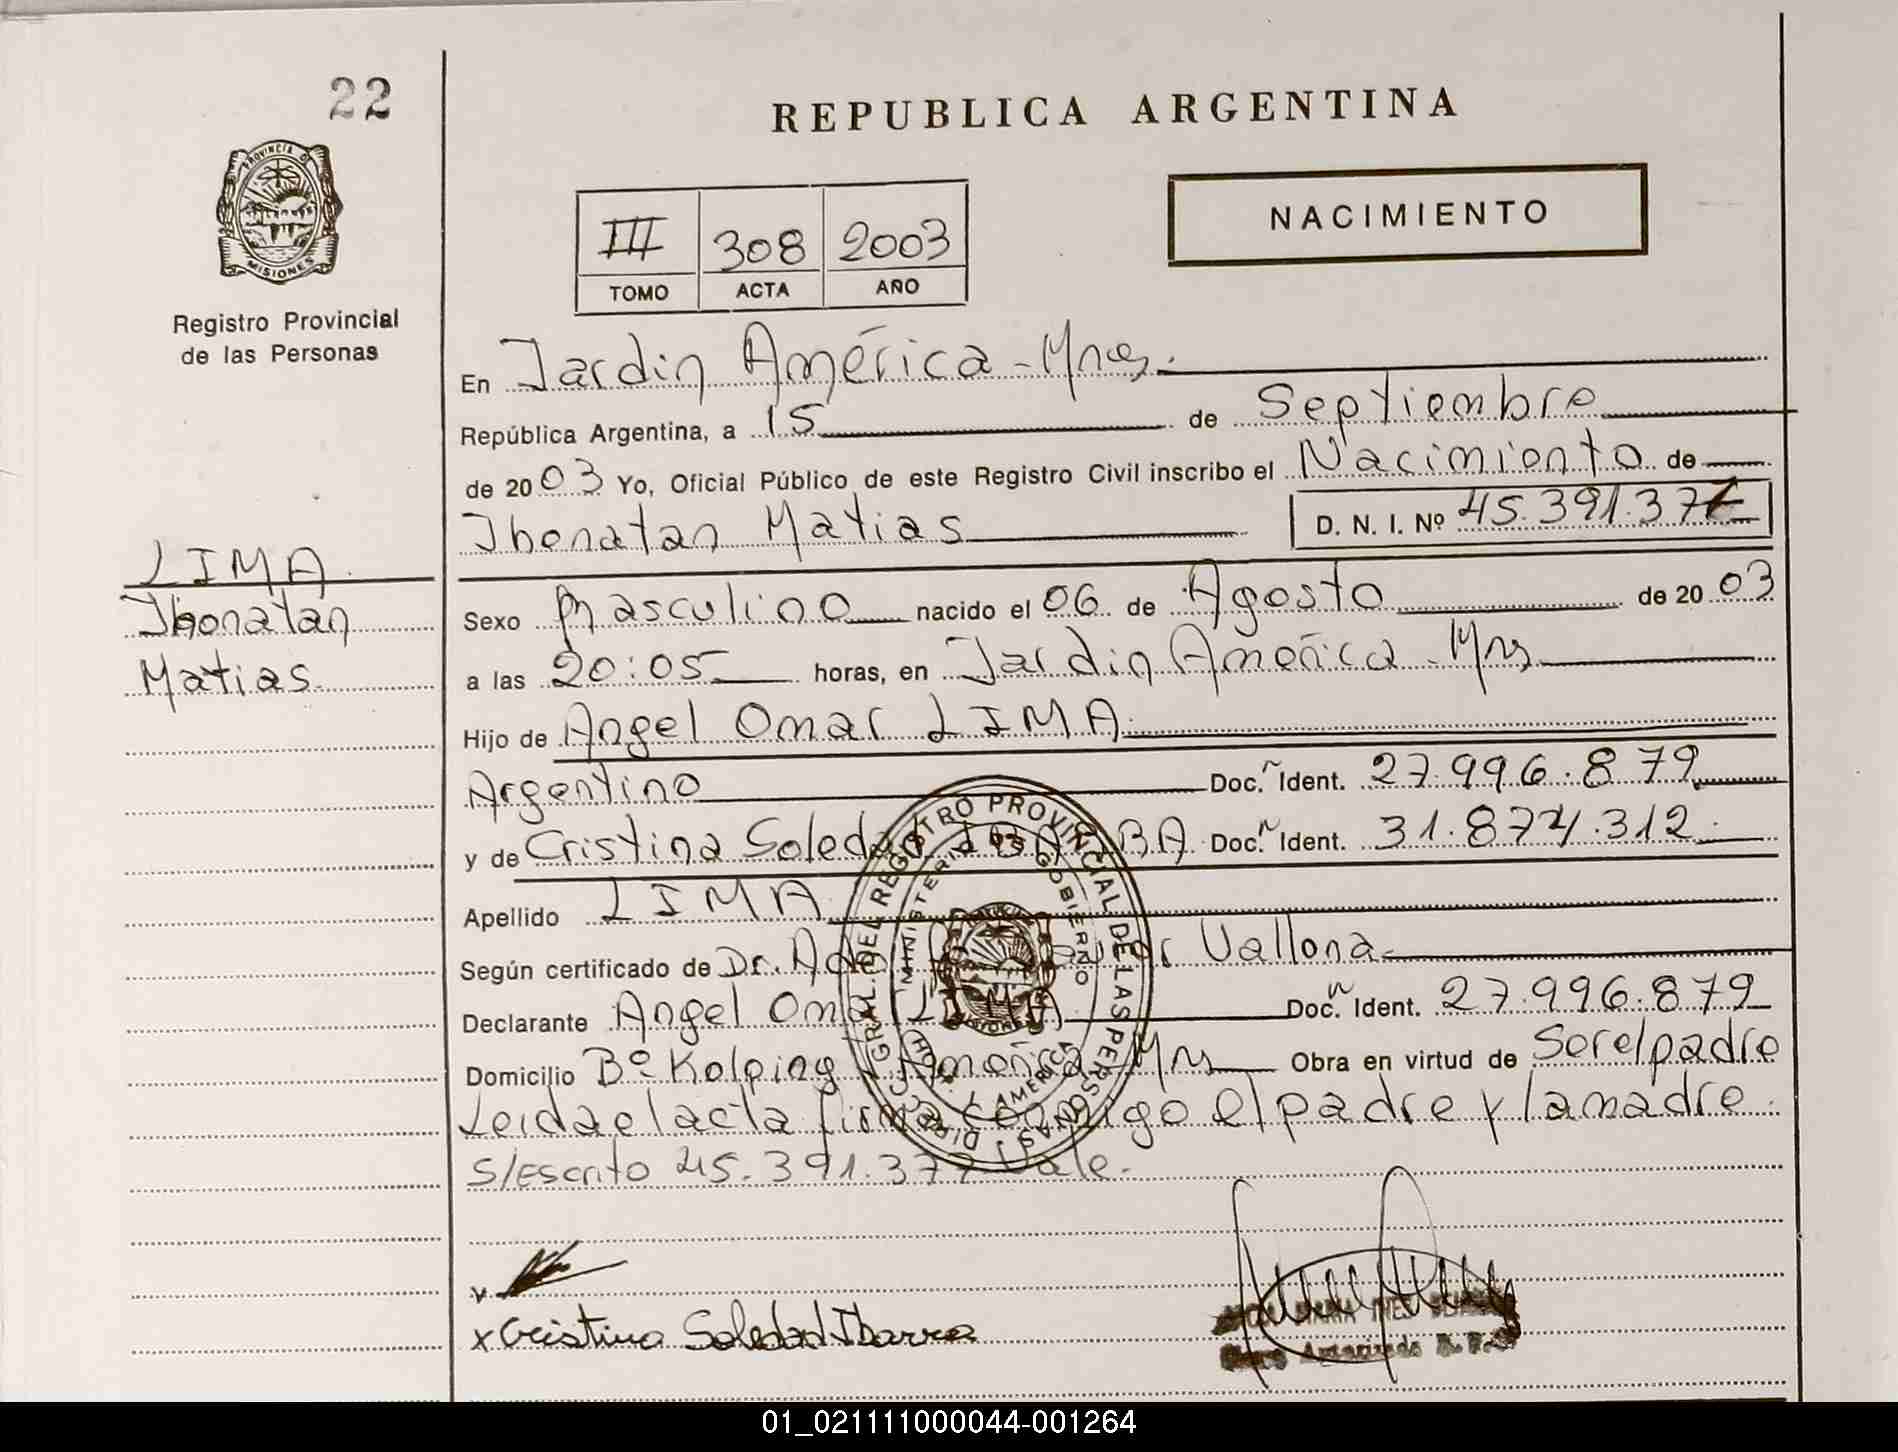 22
REPUBLICA ARGENTINA
PROVINCIA DE
MISIONES
Registro Provincial
de las Personas
III 308 2003
TOMO ACTA AÑO
NACIMIENTO
En Jardin América - Mnes.
República Argentina, a 15 de Septiembre
de 2003 Yo, Oficial Público de este Registro Civil inscribo el Nacimiento de
Jhonatan Matias D. N. I. Nº 45.391.377
LIMA
Jhonatan
Matias
Sexo Masculino nacido el 06 de Agosto de 2003
a las 20:05 horas, en Jardin América - Mns
Hijo de Angel Omar LIMA
Argentino Doc. Ident. 27.996.879
y de Cristina Soledad IBARRA Doc. Ident. 31.874.312
Apellido LIMA
Según certificado de Dr. Vallona
Declarante Angel Omar LIMA Doc. Ident. 27.996.879
Domicilio Bº Kolping J. América Mns Obra en virtud de Ser el padre
Leida el acta firma conmigo el padre y la madre.
S/Escrito 45.391.377 Vale.
DIRECC. GRAL. DEL REGISTRO PROVINCIAL DE LAS PERSONAS
MINISTERIO DE GOBIERNO
J. AMERICA
x Cristina Soledad Ibarra
MARIA INES
Autorizado
01_021111000044-001264